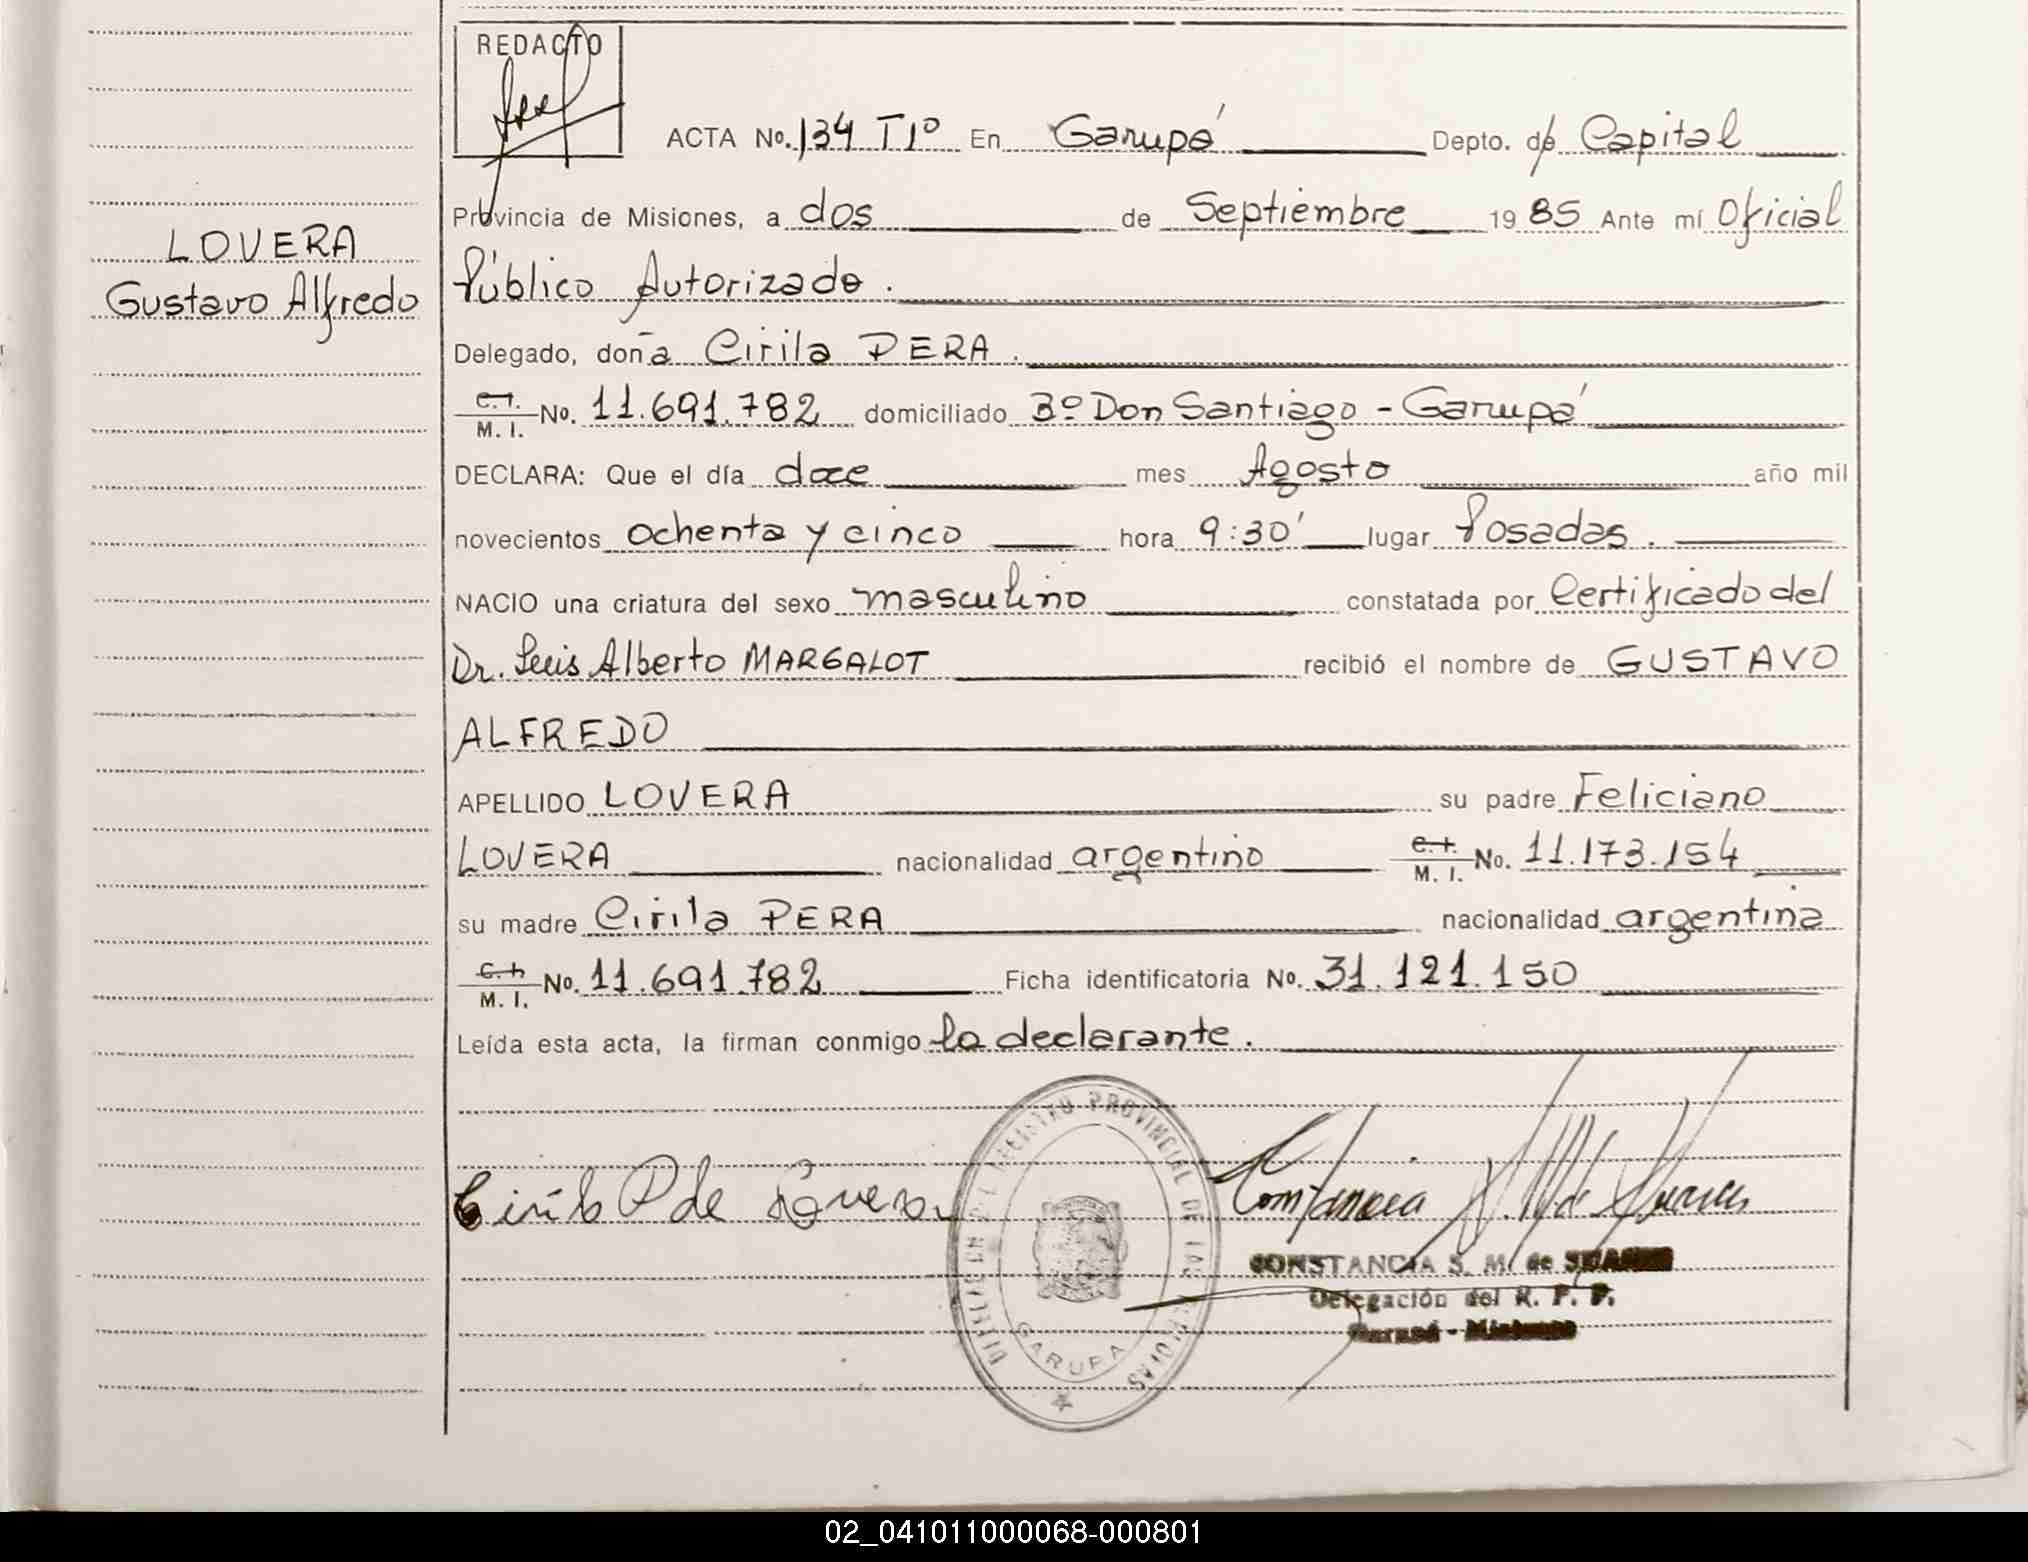 REDACTO
ACTA No. 134 TIº En Garupá Depto. de Capital
Provincia de Misiones, a dos de Septiembre 1985 Ante mí Oficial
LOVERA
Gustavo Alfredo
Público Autorizado.
Delegado, doña Cirila PERA.
C.I. M. I. No. 11.691.782 domiciliado Bº Don Santiago - Garupá
DECLARA: Que el día doce mes Agosto año mil
novecientos ochenta y cinco hora 9:30' lugar Posadas.
NACIO una criatura del sexo masculino constatada por Certificado del
Dr. Luis Alberto MARGALOT recibió el nombre de GUSTAVO
ALFREDO
APELLIDO LOVERA su padre Feliciano
LOVERA nacionalidad argentino C.I. M. I. No. 11.173.154
su madre Cirila PERA nacionalidad argentina
C.I. M. I. No. 11.691.782 Ficha identificatoria No. 31.121.150
Leída esta acta, la firman conmigo la declarante.
Cirila P de Lovera
DIRECCION DEL REGISTRO PROVINCIAL DE LAS PERSONAS
GARUPA
CONSTANCIA S. M. de
Delegación del R. P. P.
Garupá - Misiones
02_041011000068-000801